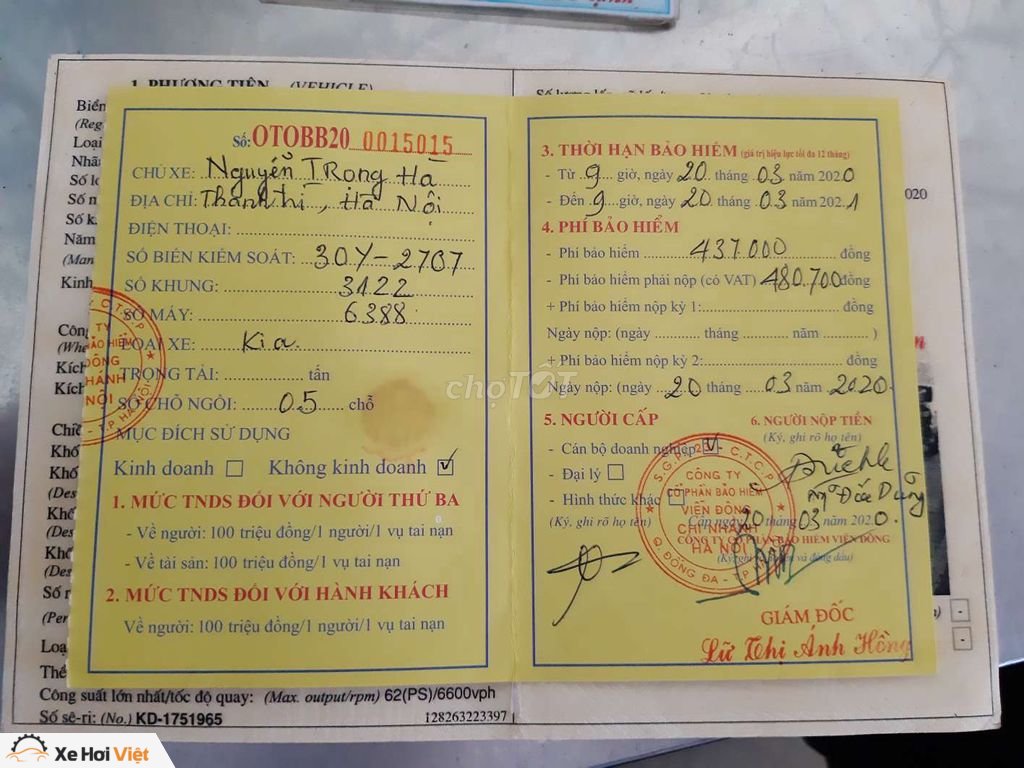 1. PHƯƠNG TIỆN (VEHICLE)
Biển
(Reg
Loại
Nhãn
Số lo
Số k
Năm
(Man
Kinh
2020
Số: OTOBB20 0015015
CHỦ XE: Nguyễn TRọng Hà
ĐỊA CHỈ: Thanh Trì, Hà Nội
ĐIỆN THOẠI:
SỐ BIỂN KIỂM SOÁT: 30Y-2707
SỐ KHUNG: 3122
SỐ MÁY: 6388
LOẠI XE: Kia
TRỌNG TẢI: tấn
SỐ CHỖ NGỒI: 05 chỗ
MỤC ĐÍCH SỬ DỤNG
Kinh doanh ☐ Không kinh doanh ☑
1. MỨC TNDS ĐỐI VỚI NGƯỜI THỨ BA
- Về người: 100 triệu đồng/1 người/1 vụ tai nạn
- Về tài sản: 100 triệu đồng/1 vụ tai nạn
2. MỨC TNDS ĐỐI VỚI HÀNH KHÁCH
Về người: 100 triệu đồng/1 người/1 vụ tai nạn
3. THỜI HẠN BẢO HIỂM (giá trị hiệu lực tối đa 12 tháng)
- Từ 9 giờ, ngày 20 tháng 03 năm 2020
- Đến 9 giờ, ngày 20 tháng 03 năm 2021
4. PHÍ BẢO HIỂM
- Phí bảo hiểm 437000 đồng
- Phí bảo hiểm phải nộp (có VAT) 480.700 đồng
+ Phí bảo hiểm nộp kỳ 1: đồng
Ngày nộp: (ngày tháng năm )
+ Phí bảo hiểm nộp kỳ 2: đồng
Ngày nộp: (ngày 20 tháng 03 năm 2020
5. NGƯỜI CẤP
- Cán bộ doanh nghiệp ☑
- Đại lý ☐
- Hình thức khác ☐
(Ký, ghi rõ họ tên)
6. NGƯỜI NỘP TIỀN
(Ký, ghi rõ họ tên)
Cấp ngày 20 tháng 03 năm 2020
CÔNG TY CỔ PHẦN BẢO HIỂM VIỄN ĐÔNG
CÔNG TY
CỔ PHẦN BẢO HIỂM
VIỄN ĐÔNG
CHI NHÁNH
HÀ NỘI
Q. ĐỐNG ĐA - T.P
GIÁM ĐỐC
Lữ Thị Ánh Hồng
chợTỐT
Công suất lớn nhất/tốc độ quay: (Max. output/rpm) 62(PS)/6600vph
Số sê-ri: (No.) KD-1751965 128263223397
Xe Hơi Việt